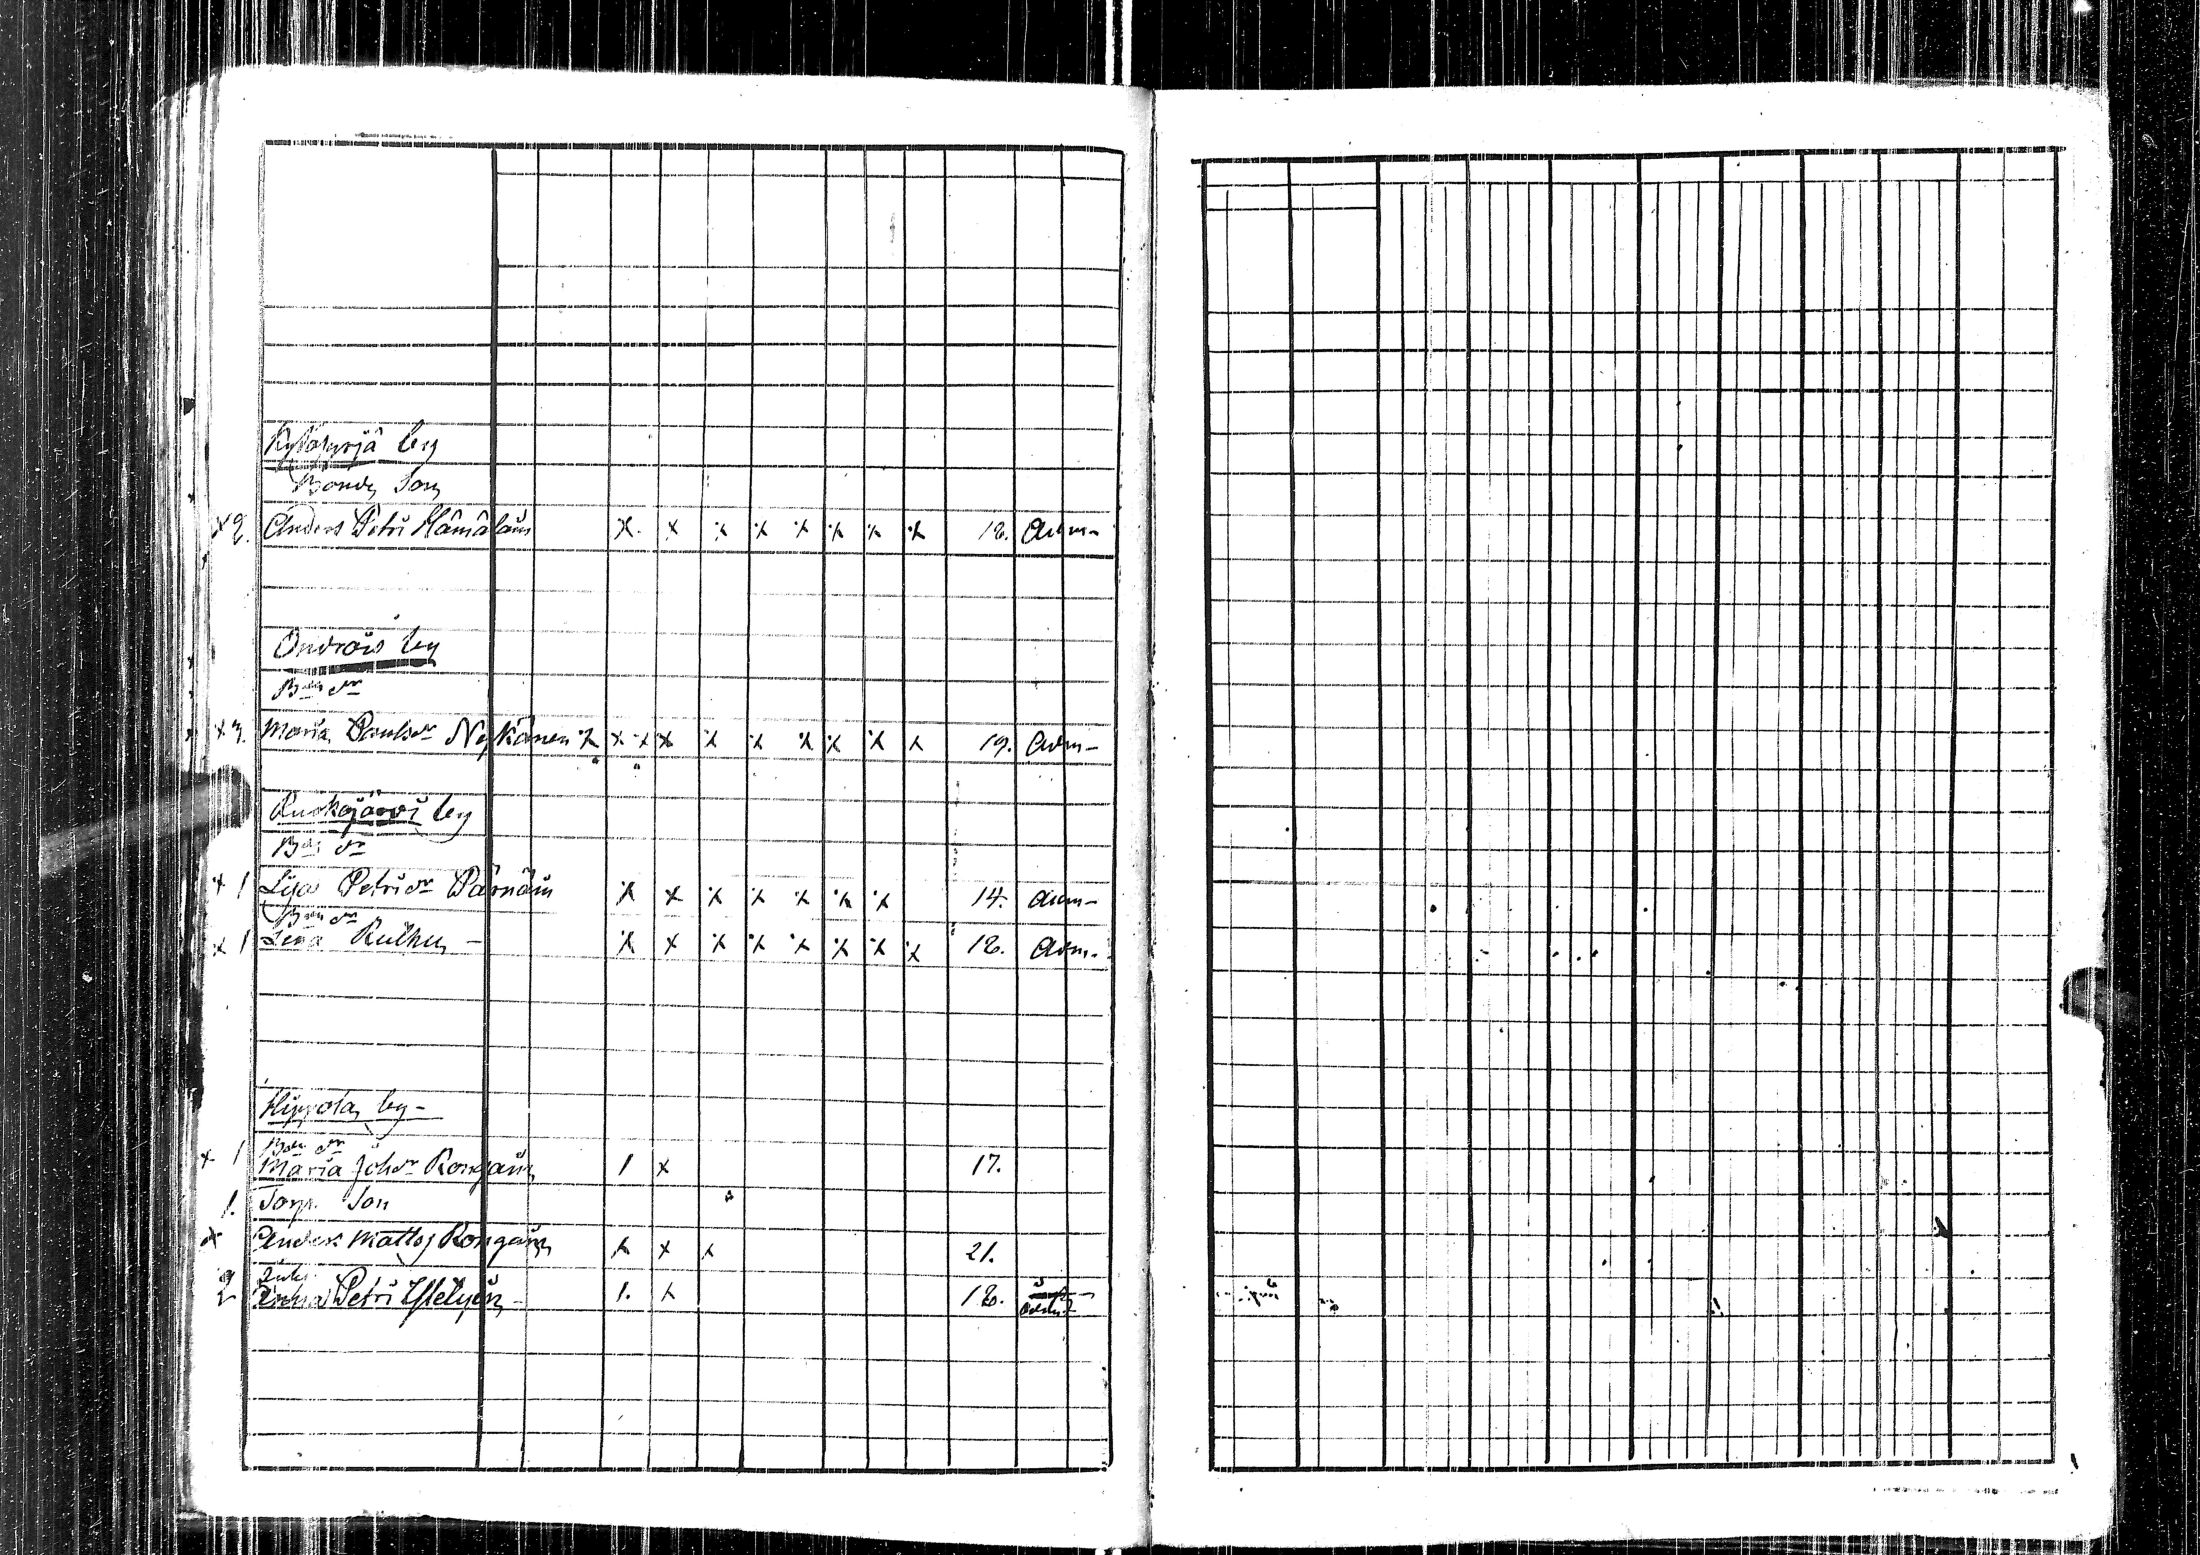 by
Bonde Son
x 2. Anders Petri Hämäläin x x x x x x x x 18. Adm-
Ondrois by
Bdes dr
x 3. Maria Paulsdr Nykänen x x x x x x x x x x 19. Adm-
Ruokojärvi by
Bdes dr
x 1 Lisa Petridr Pärnäin x x x x x x x 14. Adm-
Bdes dr
x 1 Lena - x x x x x x x x 18. Adm-
Hippola by-
x 1 Bde dr
Maria Johdr Rongain 1 x 17.
1. Torp. Son
x Anders Matts Rongain x x x 21.
2 Petri 1. x 18.